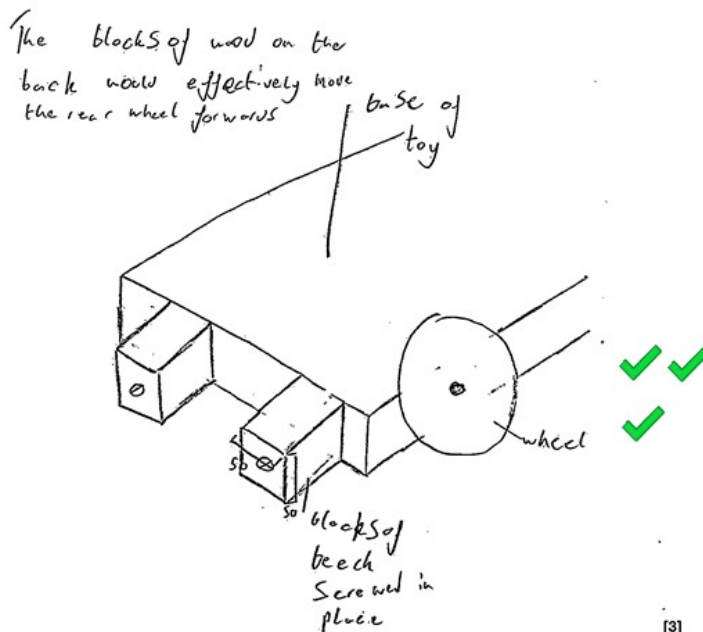 The blocks of wood on the
back would effectively move
the rear wheel forwards
base of
toy
wheel
50
50
blocks of
beech
screwed in
place
[3]